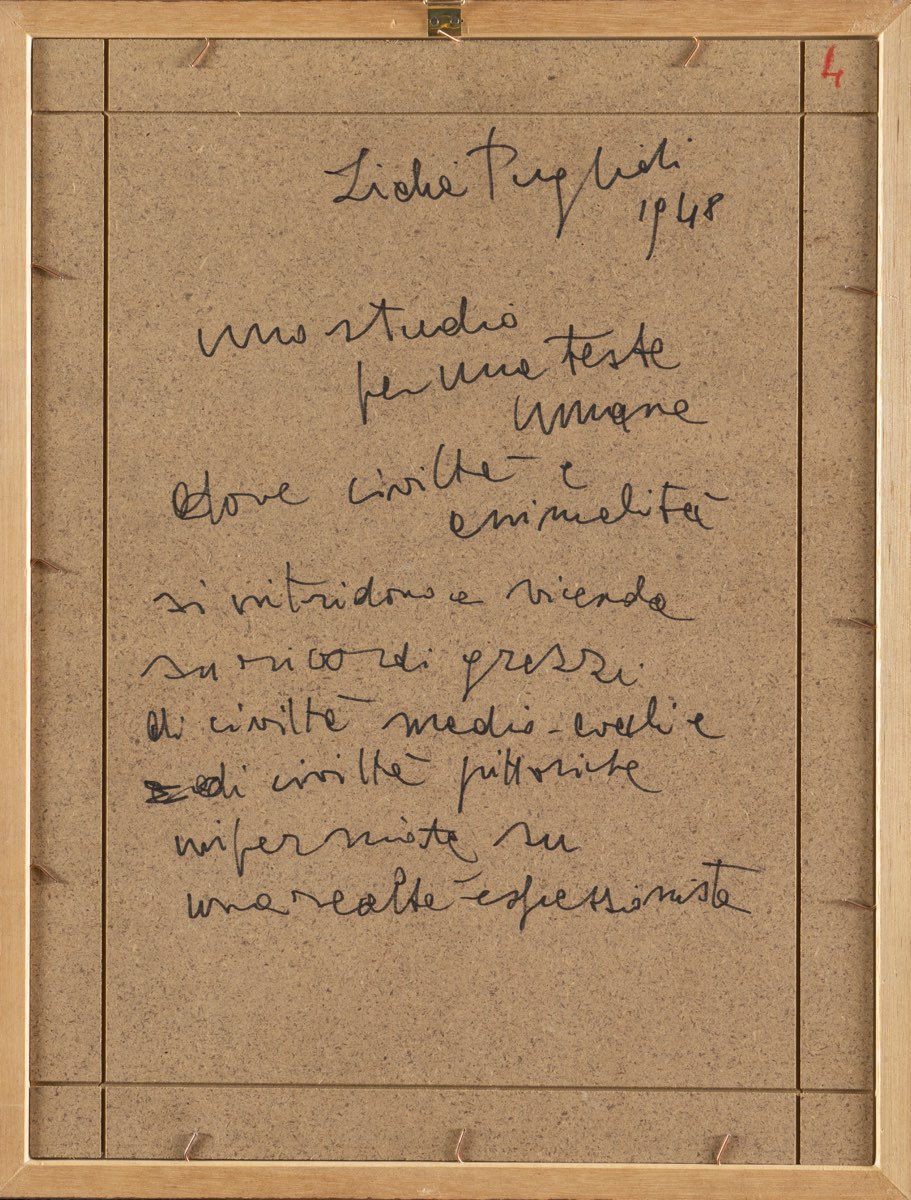 4
Lidia Puglioli
1948
uno studio
per una testa
umana
dove civiltà e
animalità
si intridono a vicenda
su ricordi grezzi
di civiltà medio-evali e
di civiltà pittoriche
su
una realtà espressionista